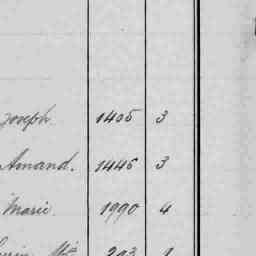 Joseph 1405 3
Amand. 1446 3
Marie 1990 4
293